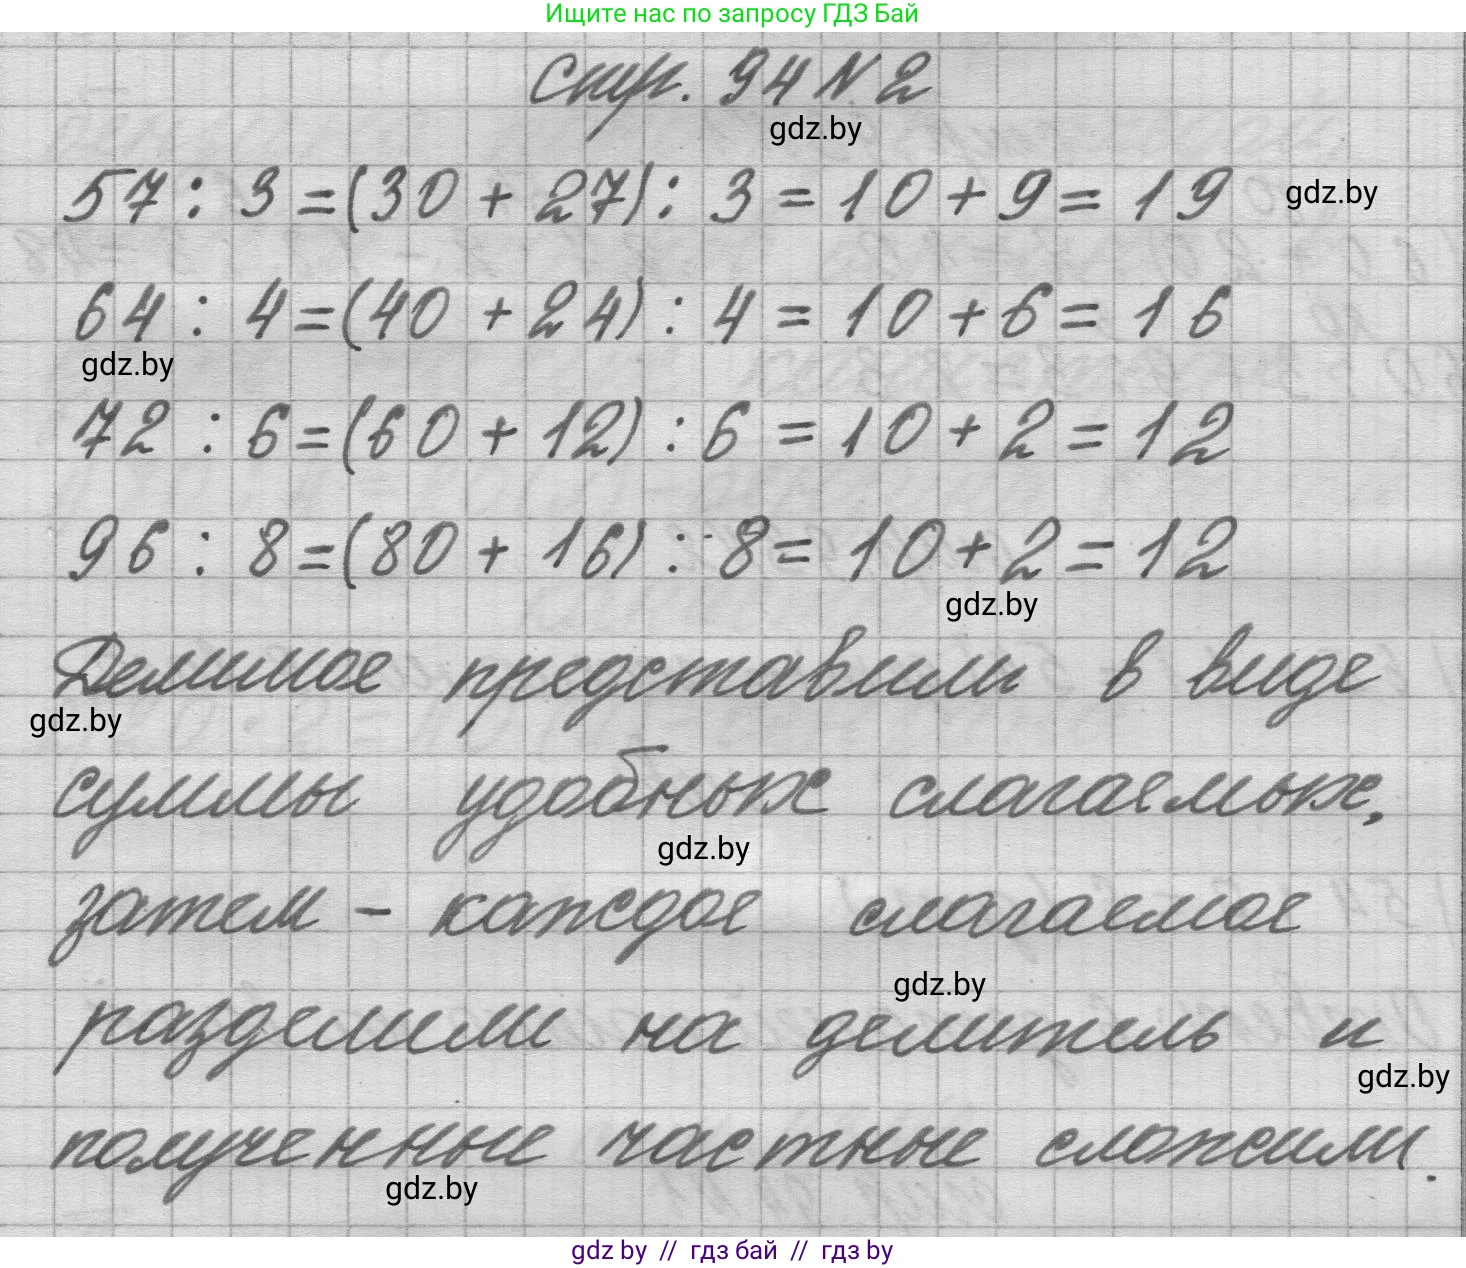 Ищите нас по запросу ГДЗ Бай
Стр. 94 № 2
gdz.by
57 : 3 = (30 + 27) : 3 = 10 + 9 = 19 gdz.by
64 : 4 = (40 + 24) : 4 = 10 + 6 = 16
gdz.by
72 : 6 = (60 + 12) : 6 = 10 + 2 = 12
96 : 8 = (80 + 16) : 8 = 10 + 2 = 12
gdz.by
Делимое представили в виде
gdz.by
суммы удобных слагаемых,
gdz.by
затем - каждое слагаемое
gdz.by
разделили на делитель и
gdz.by
полученные частные сложили.
gdz.by
gdz by // гдз бай // гдз by